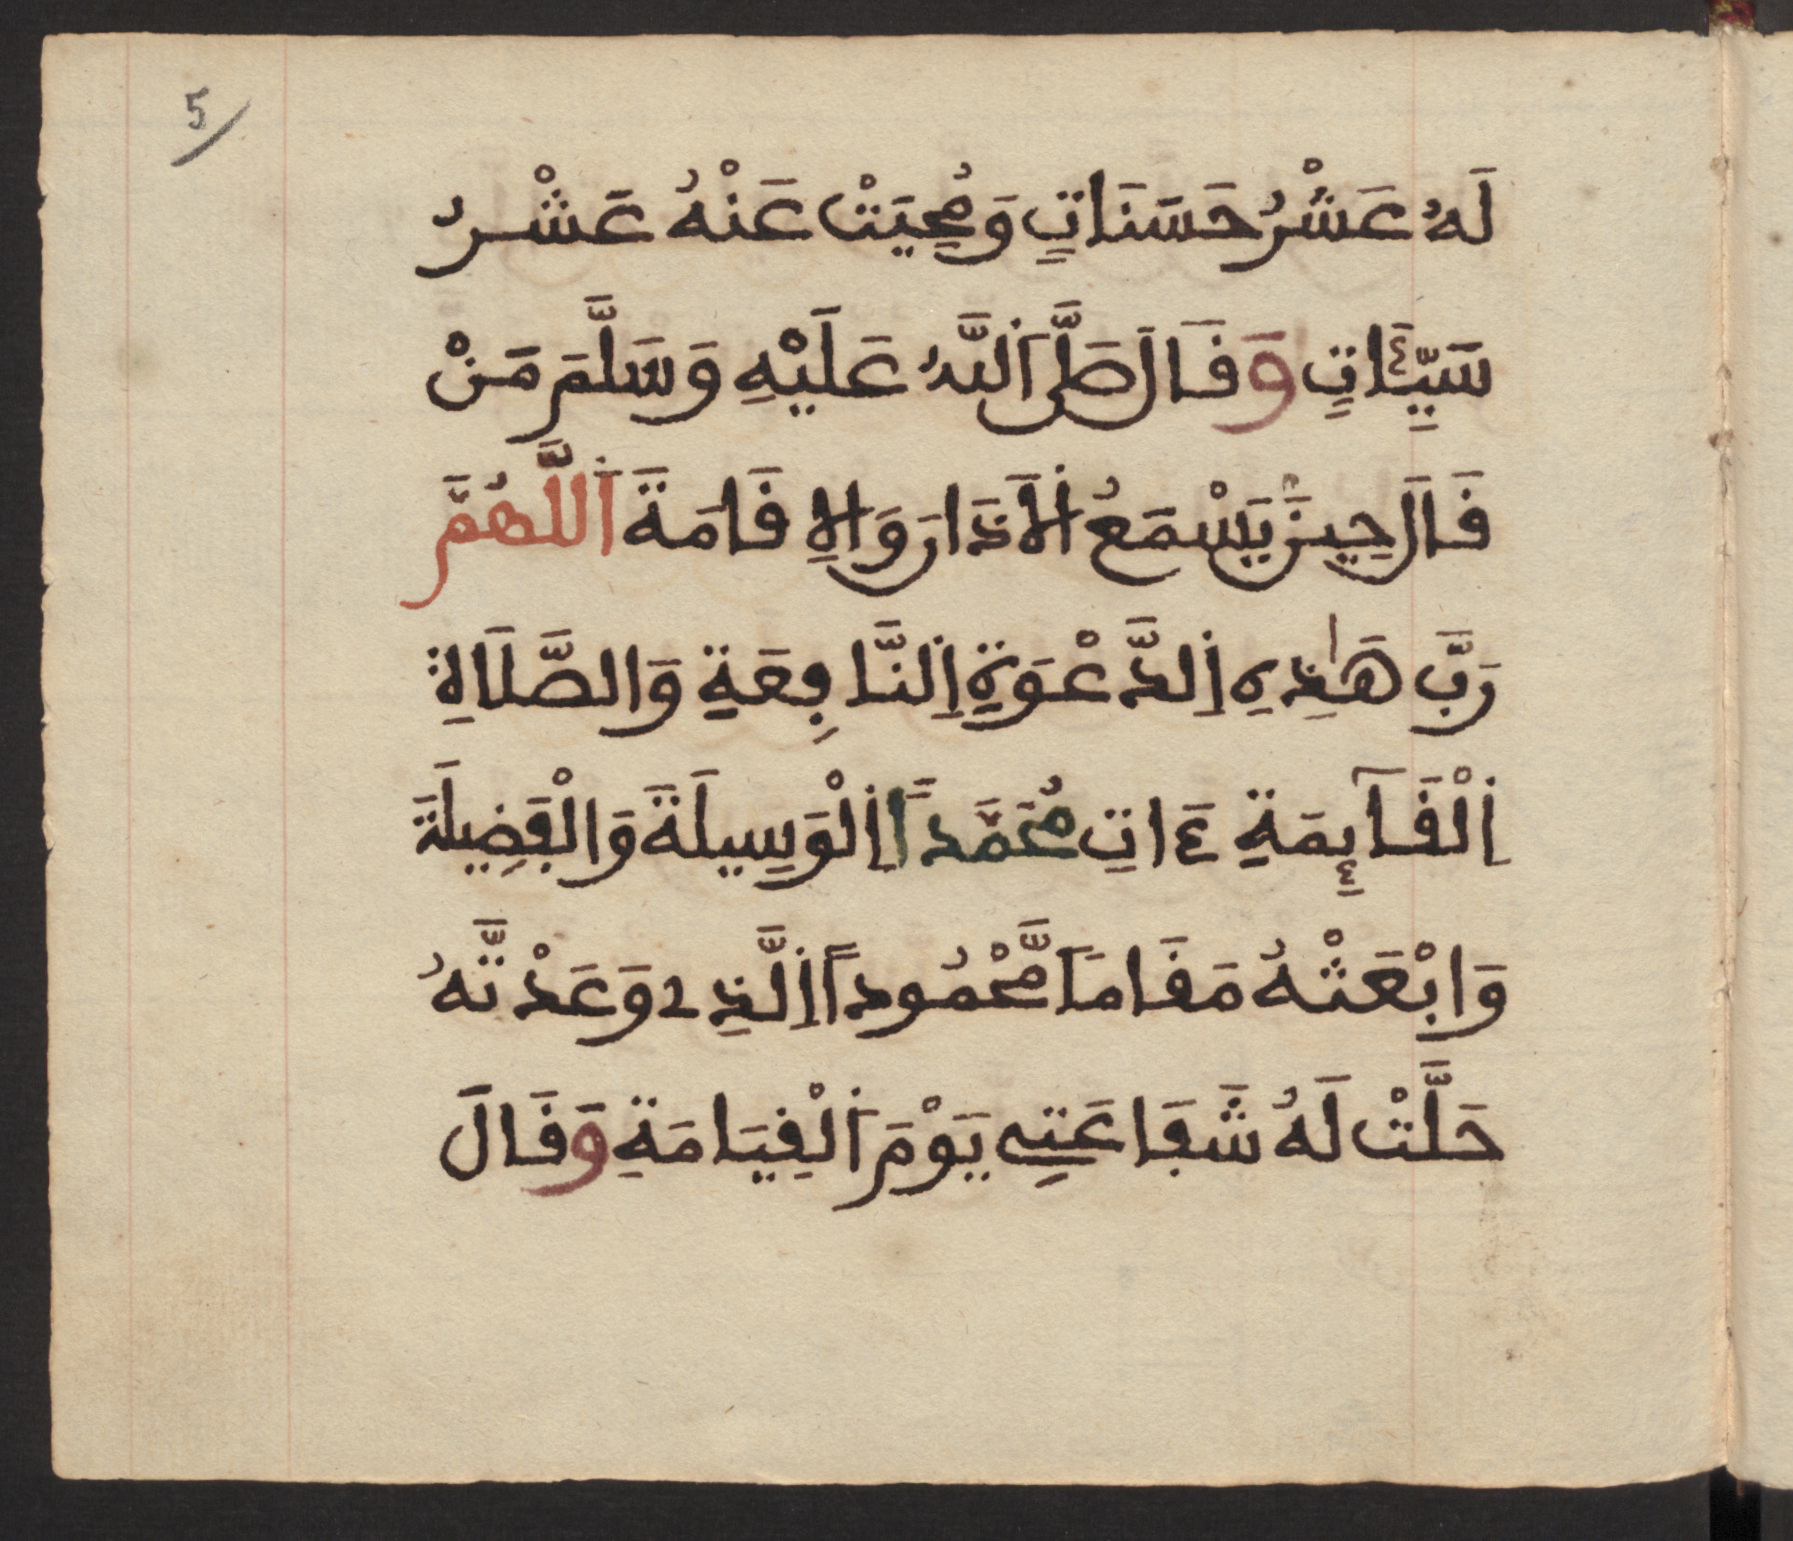 5
لَهُ عَشْرُ حَسَنَاتٍ وَمُحِيَتْ عَنْهُ عَشْرُ
سَيِّئَاتٍ وَقَالَ صَلَّى اَللَّهُ عَلَيْهِ وَسَلَّمَ مَنْ
قَالَ حِينَ يَسْمَعُ اَلْأَذَانَ وَالْإِقَامَةَ اَللَّهُمَّ
رَبَّ هَٰذِهِ اِلدَّعْوَةِ اِلنَّافِعَةِ وَالصَّلَاةِ
اِلْقَآئِمَةِ ءَاتِ مُحَمَّداً اِلْوَسِيلَةَ وَالْفَضِيلَةَ
وَابْعَثْهُ مَقَاماً مَّحْمُوداً اِلَّذِے وَعَدْتَّهُ
حَلَّتْ لَهُ شَفَاعَتِى يَوْمَ اَلْقِيَامَةِ وَقَالَ